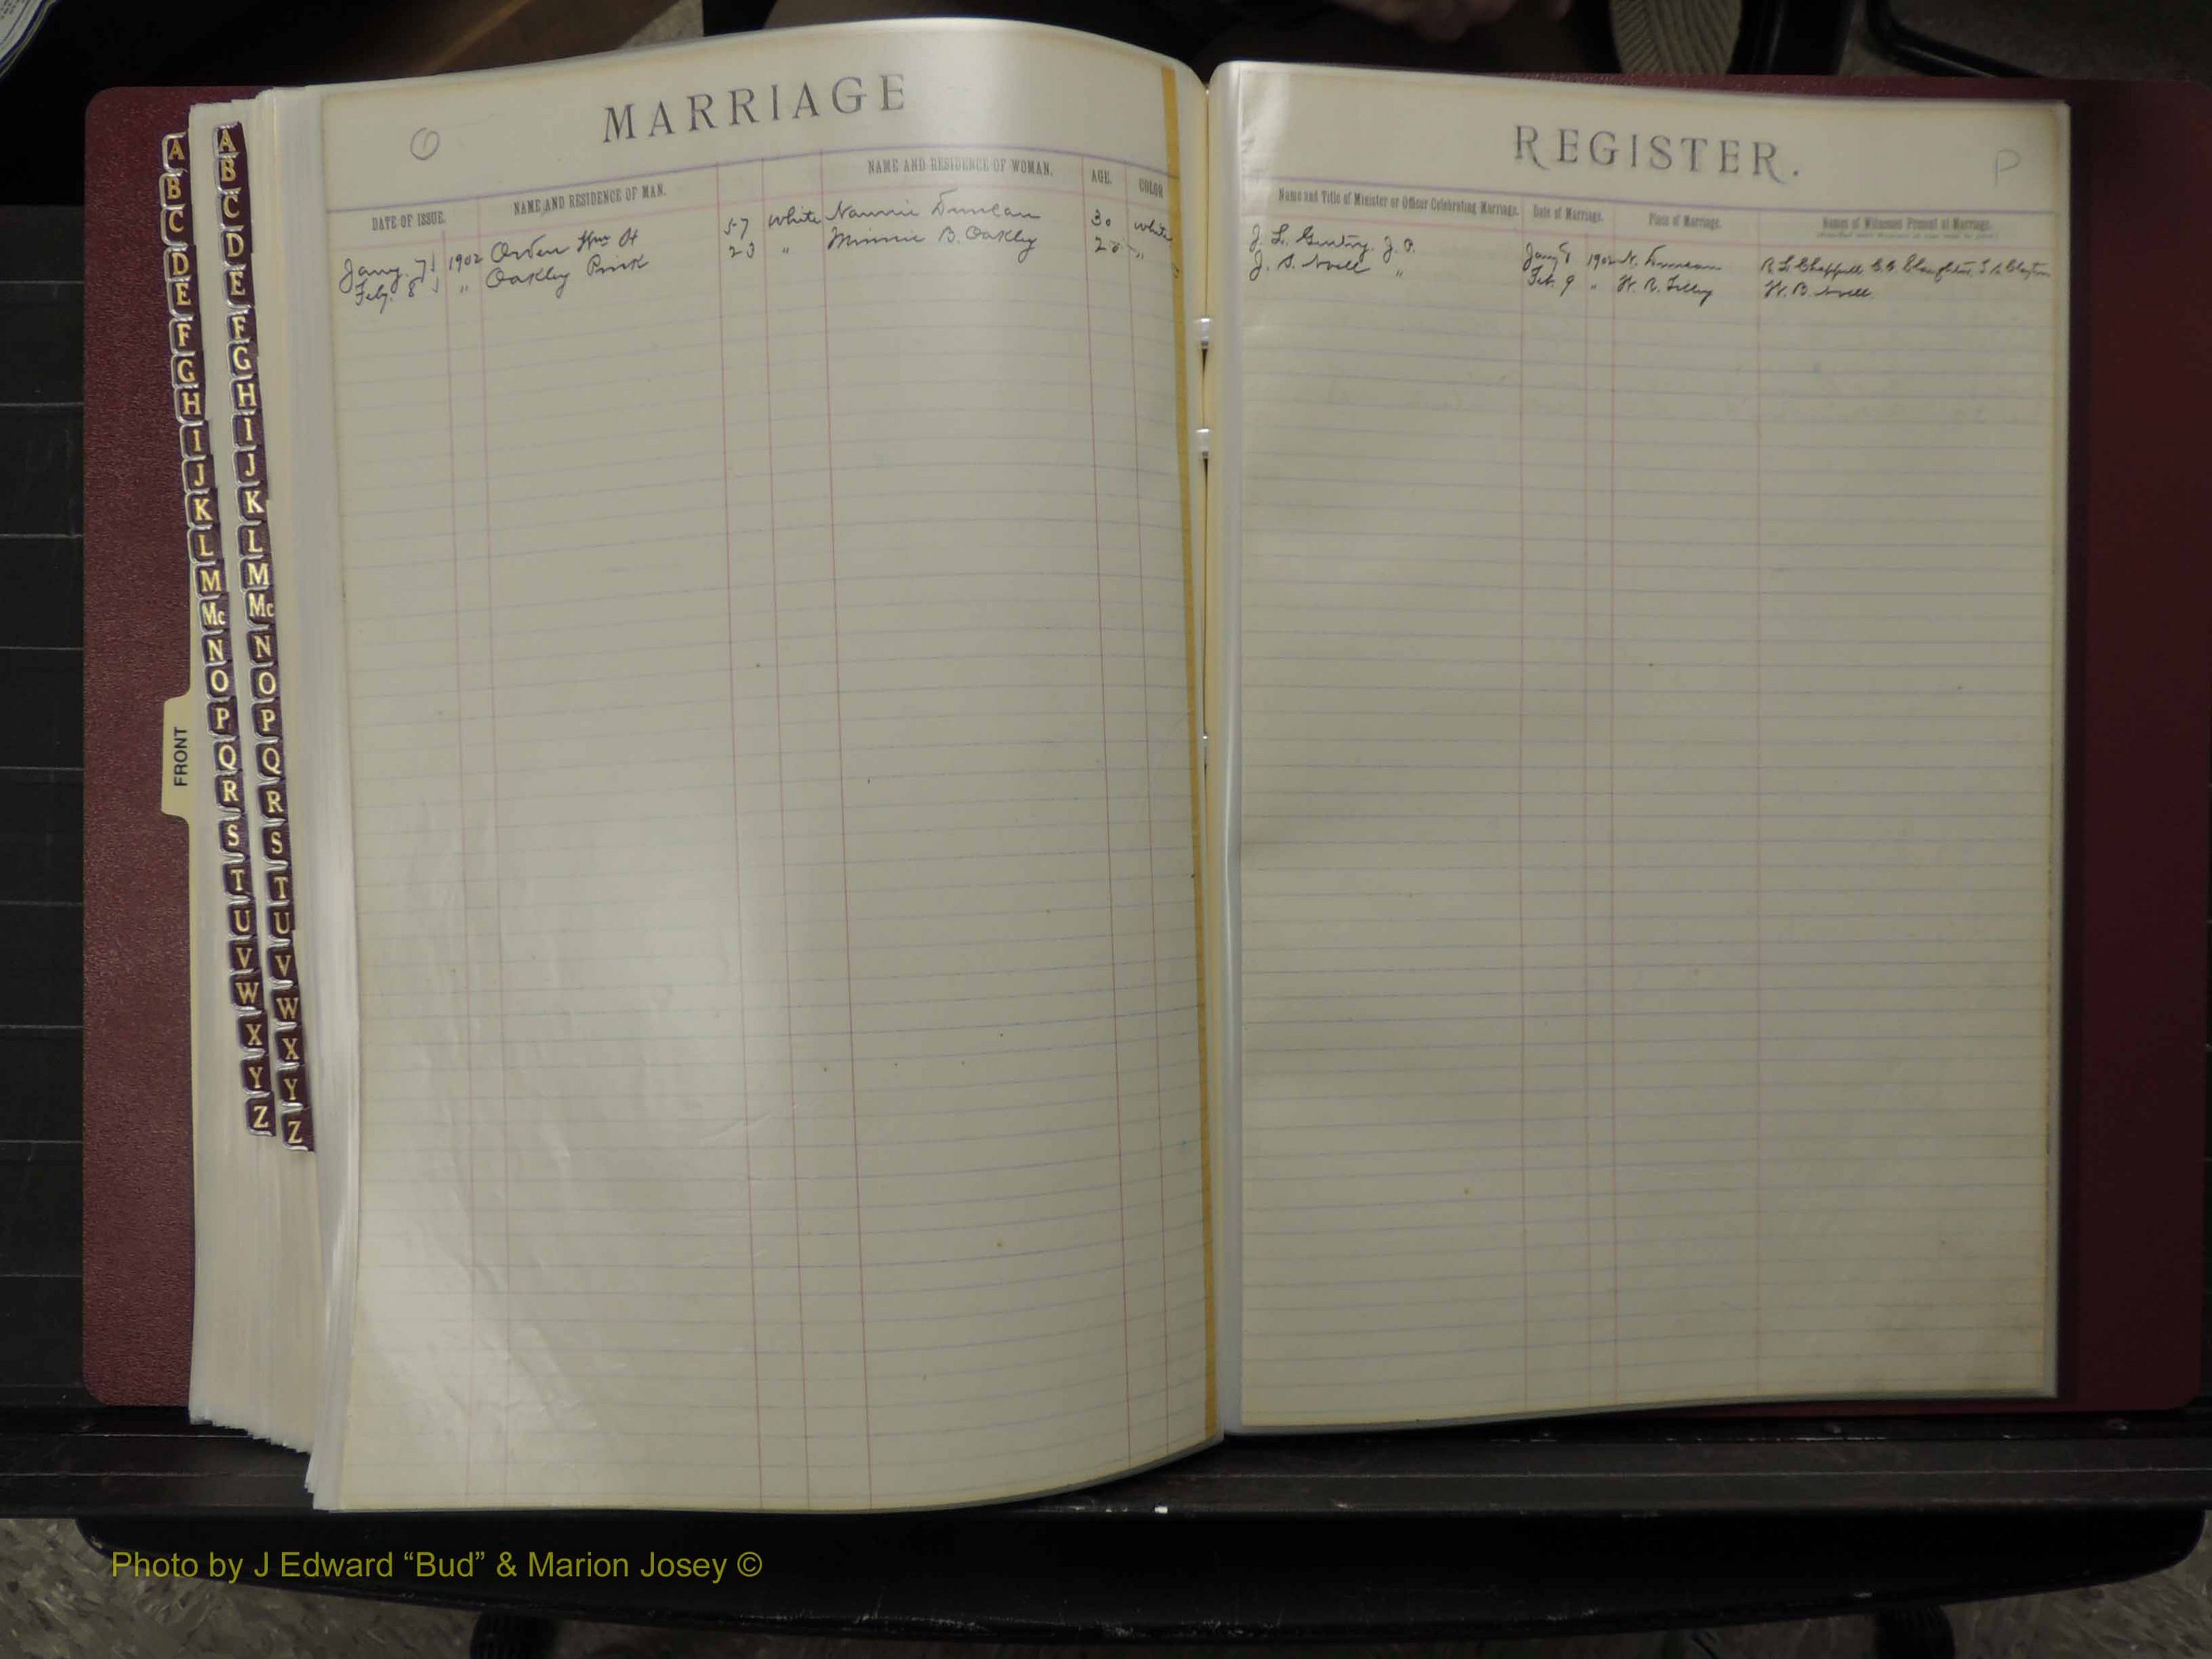 MARRIAGE
NAME AND RESIDENCE OF WOMAN. AGE. COLOR
DATE OF ISSUE. NAME AND RESIDENCE OF MAN.
Jany. 7 1902 57 white Nannie Duncan 30 white
Feby. 8 " Oakley Pink 23 " Minnie B. Oakley 20 "
REGISTER.
P
Name and Title of Minister or Officer Celebrating Marriage. Date of Marriage. Place of Marriage. Names of Witnesses Present at Marriage.
J. L. Gentry. J. P. Jany 8 1902 N. Duncan R. L. Chappell
J. S. Noell " Feb. 9 " W. R. W. B. Noell
A
B
C
D
E
F
G
H
I
J
K
L
M
Mc
N
O
P
Q
R
S
T
U
V
W
X
Y
Z
A
B
C
D
E
F
G
H
I
J
K
L
M
Mc
N
O
P
Q
R
S
T
U
V
W
X
Y
Z
FRONT
Photo by J Edward “Bud” & Marion Josey ©